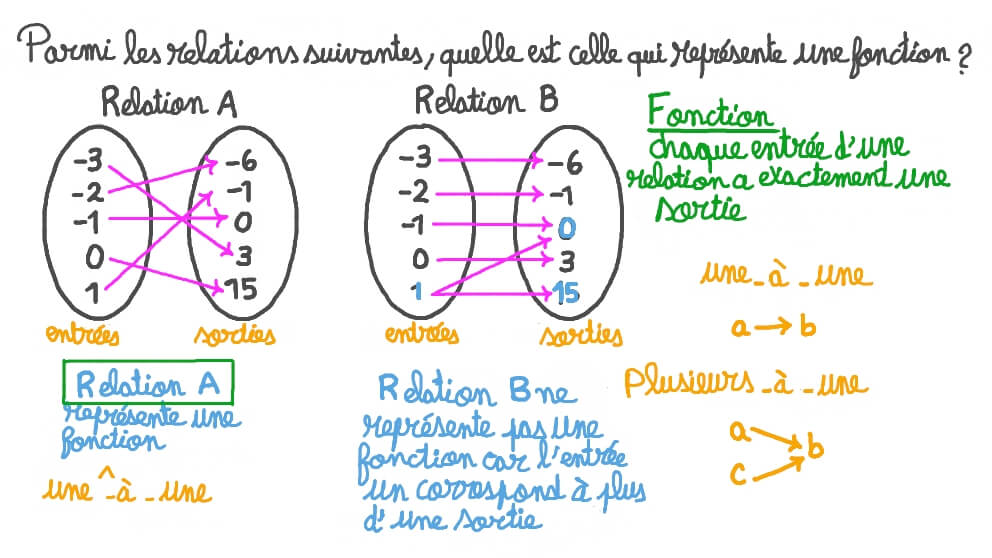 Parmi les relations suivantes, quelle est celle qui représente une fonction ?
Relation A
-3
-2
-1
0
1
-6
-1
0
3
15
entrées
sorties
Relation A
représente une
fonction
une -à - une
Relation B
-3
-2
-1
0
1
-6
-1
0
3
15
entrées
sorties
Relation B ne
représente pas une
fonction car l'entrée
un correspond à plus
d'une sortie
Fonction
chaque entrée d'une
relation a exactement une
sortie
une - à - une
a → b
Plusieurs - à - une
a
c
b